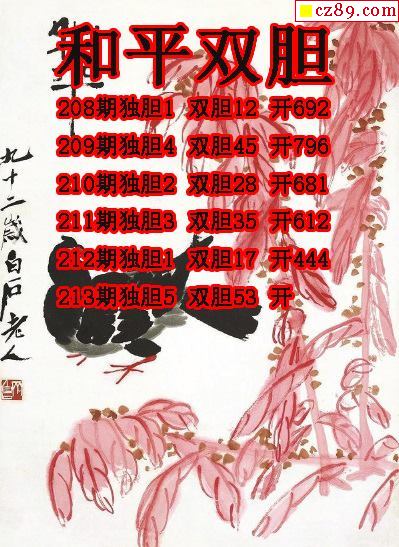 cz89.com
和平双胆
208期独胆1 双胆12 开692
209期独胆4 双胆45 开796
210期独胆2 双胆28 开681
211期独胆3 双胆35 开612
212期独胆1 双胆17 开444
213期独胆5 双胆53 开
九十二岁白石老人